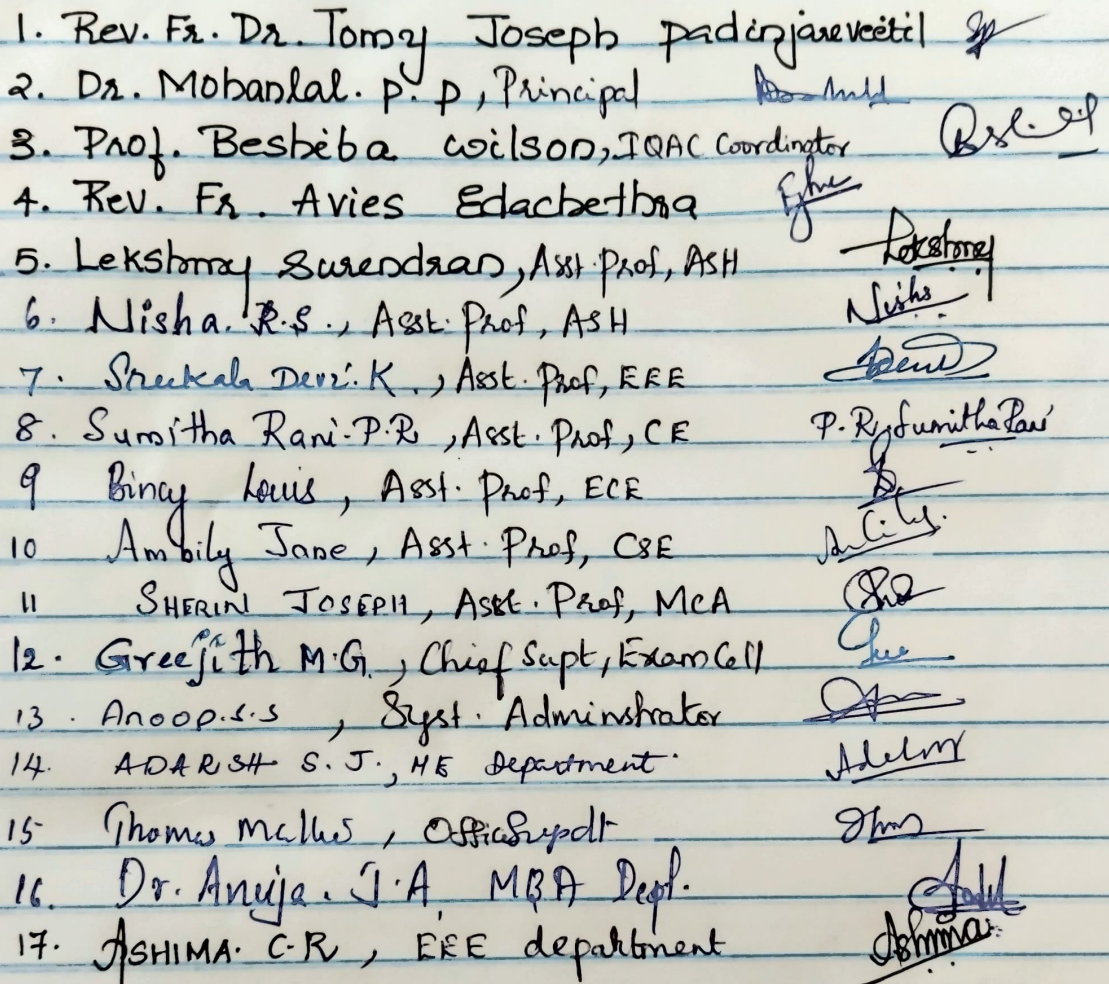 1. Rev. Fr. Dr. Tomy Joseph padinjareveetil
2. Dr. Mohanlal. P. P, Principal
3. Prof. Beshiba Wilson, IQAC Coordinator
4. Rev. Fr. Avies Edachethra
5. Lekshmy Surendran, Asst. Prof, ASH Lekshmy
6. Nisha. R.S., Asst. Prof, ASH Nisha
7. Sreekala Devi. K., Asst. Prof, EEE
8. Sumitha Rani. P.R, Asst. Prof, CE P. R. Sumitha Rani
9 Bincy Louis, Asst. Prof, ECE
10 Ambily Jane, Asst. Prof, CSE
11 SHERIN JOSEPH, Asst. Prof, MCA
12. Greejith M.G., Chief Supt, Exam Cell
13. Anoop.S.S, Syst. Adminstrator
14. ADARSH S. J., ME Department
15 Thomas Mathew, Office Supdt
16. Dr. Anuja. J.A, MBA Dept.
17. ASHIMA. C.R, EEE department Ashima